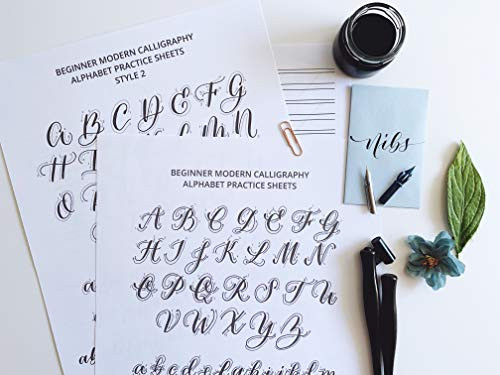 BEGINNER MODERN CALLIGRAPHY
ALPHABET PRACTICE SHEETS
STYLE 2
A B C D E F G
BEGINNER MODERN CALLIGRAPHY
ALPHABET PRACTICE SHEETS
A B C D E F G
H I J K L M N
O P Q R S T U
V W X Y Z
a b c d e f g h i j k l m
nibs